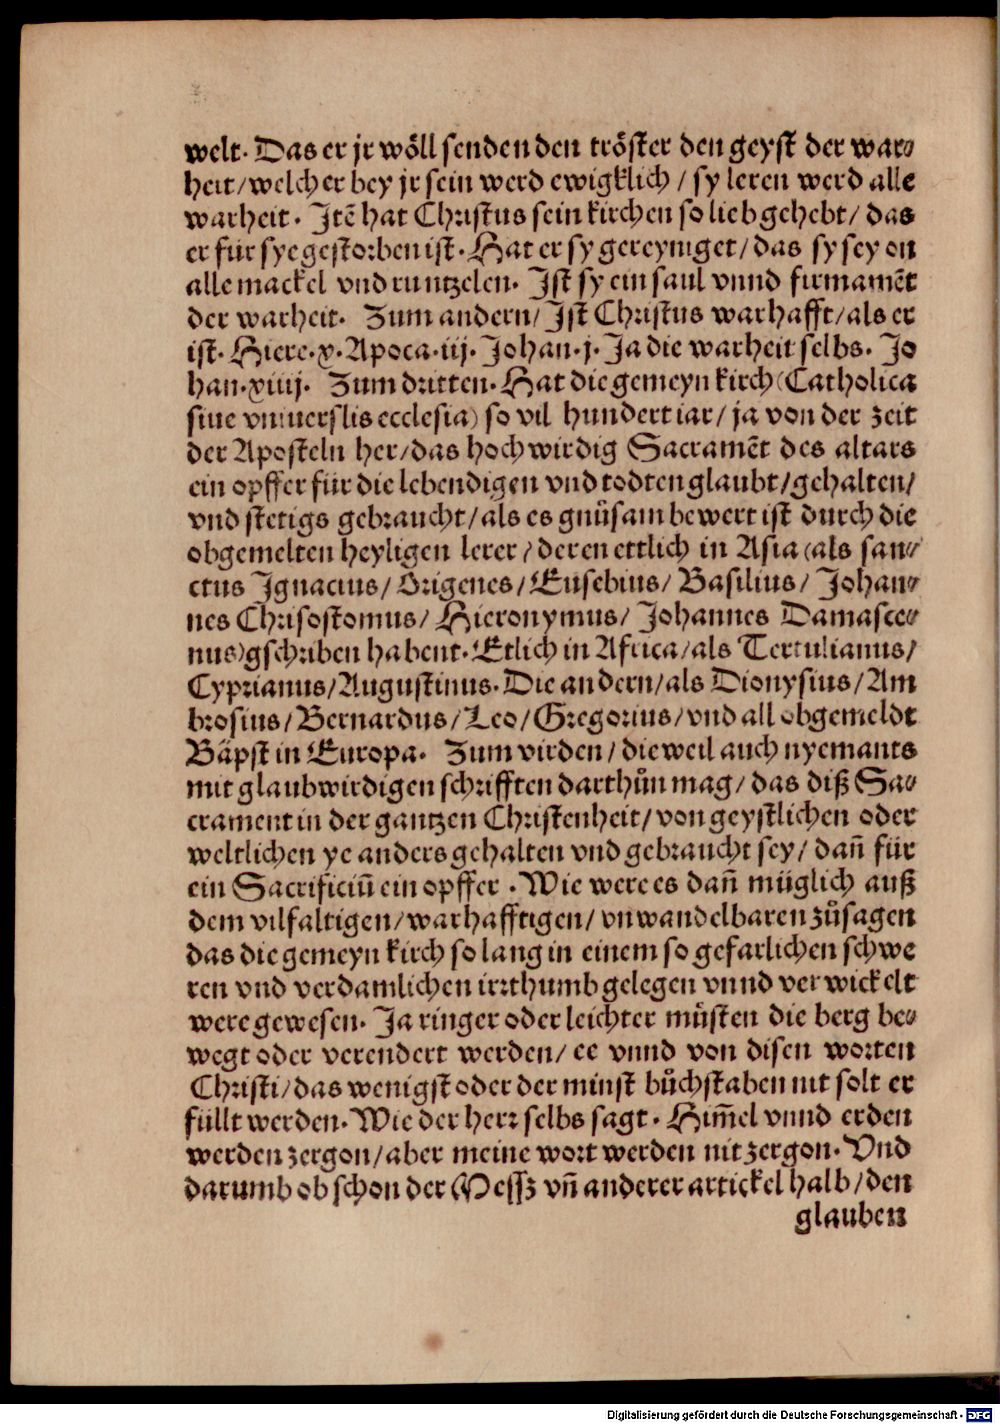 welt. Das er jr wöll senden den tröster den geyst der war⸗
heit/welcher bey jr sein werd ewigklich/ sy leren werd alle
warheit. Itē hat Christus sein kirchen so lieb gehebt/ das
er für sye gestorben ist. Hat er sy gereyniget/das sy sey on
alle mackel vnd runtzelen. Ist sy ein saul vnnd firmamēt
der warheit. Zum andern/ Ist Christus warhafft/als er
ist. Hiere.x. Apoca.iij. Johan.j. Ja die warheit selbs. Jo
han.xiiij. Zum dritten. Hat die gemeyn kirch (Catholica
siue vniuerslis ecclesia) so vil hundert iar/ ja von der zeit
der Aposteln her/das hochwirdig Sacramēt des altars
ein opffer für die lebendigen vnd todten glaubt/gehalten/
vnd stetigs gebraucht/als es gnůsam bewert ist durch die
obgemelten heyligen lerer/deren ettlich in Asia (als san⸗
ctus Ignacius/ Origenes/ Eusebius/ Basilius/ Johan⸗
nes Chrisostomus/ Hieronymus/ Johannes Damasce⸗
nus)gschriben habent. Etlich in Africa/als Tertulianus/
Cyprianus/Augustinus. Die andern/als Dionysius/Am
brosius/Bernardus/Leo/Gregorius/vnd all obgemeldt
Bäpst in Europa. Zum virden/ dieweil auch nyemants
mit glaubwirdigen schrifften darthůn mag/das diß Sa⸗
crament in der gantzen Christenheit/von geystlichen oder
weltlichen ye anders gehalten vnd gebraucht sey/dan̄ für
ein Sacrificiū ein opffer. Wie were es dan̄ müglich auß
dem vilfaltigen/warhafftigen/vnwandelbaren zůsagen
das die gemeyn kirch so lang in einem so gefarlichen schwe
ren vnd verdamlichen irrthumb gelegen vnnd verwickelt
were gewesen. Ja ringer oder leichter můsten die berg be⸗
wegt oder verendert werden/ ee vnnd von disen worten
Christi/das wenigst oder der minst bůchstaben nit solt er
füllt werden. Wie der herr selbs sagt. Him̄el vnnd erden
werden zergon/aber meine wort werden nit zergon. Vnd
darumb ob schon der Messz vn̄ anderer artickel halb/den
glauben
Digitalisierung gefördert durch die Deutsche Forschungsgemeinschaft - DFG